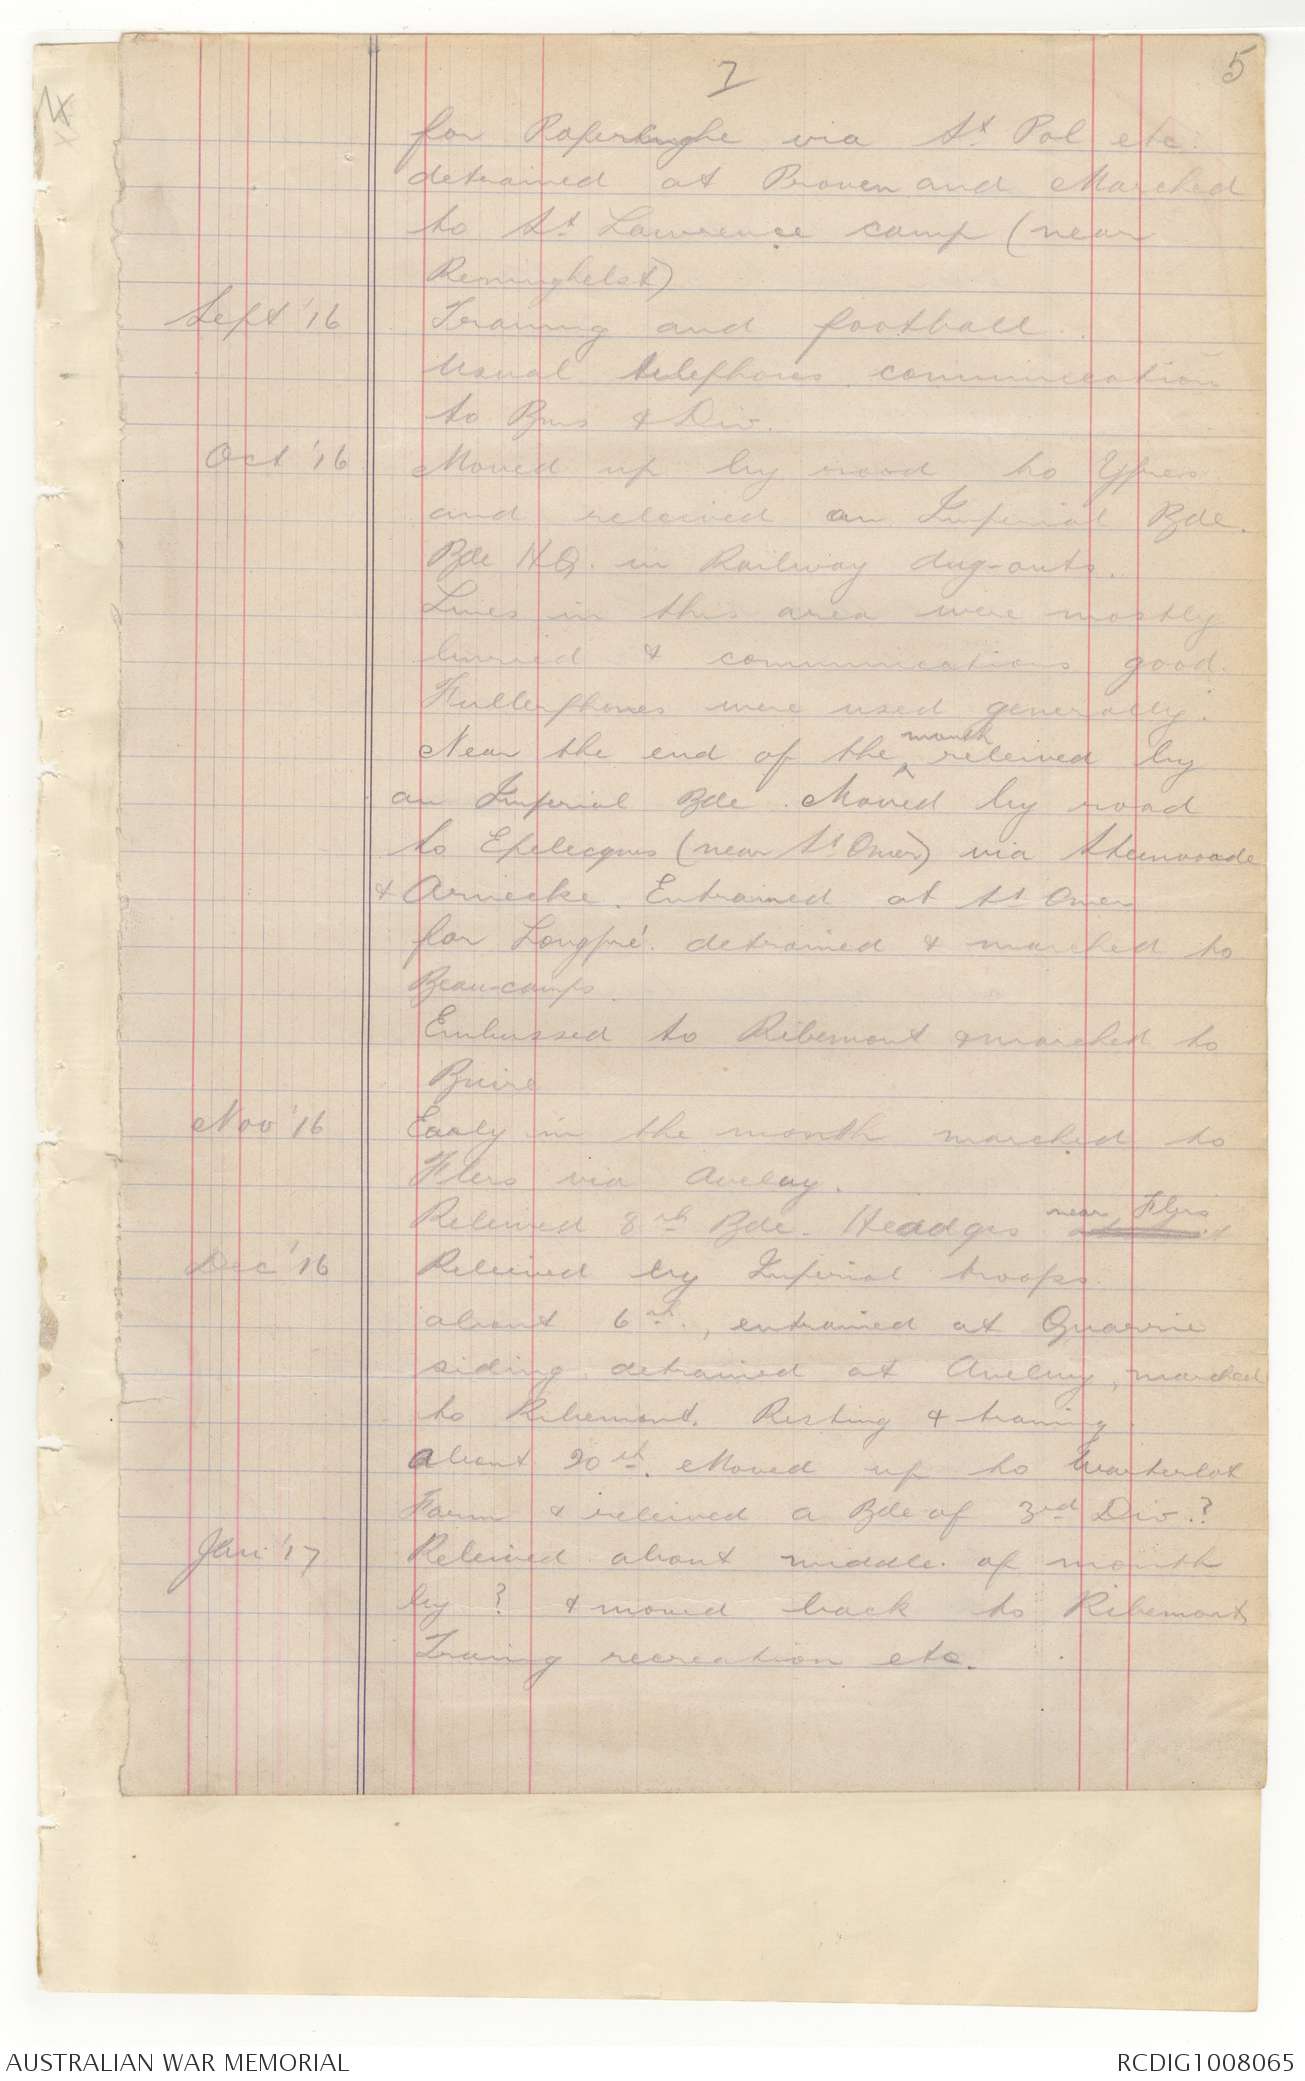 7
5
for Poperinghe via St. Pol etc.
detrained at Proven and Marched
to St. Lawrence camp (near
Reninghelst)
Sept '16 Traning and football.
Usual telephones communication
to Bns & Div.
Oct '16 Moved up by road to Ypres
and releived an Imperial Bde.
Bde HQ. in Railway dug-outs.
Lines in this area were mostly
burried & communications good.
Fullerphones were used generally.
Near the end of the month releived by
an Imperial Bde. Moved by road
to Epelecques (near St Omer) via Steenvoorde
& Arnecke. Entrained at St. Omer
for Longpré. detrained & marched to
Beaucamps.
Embussed to Ribemont & marched to
Buire
Nov '16 Early in the month marched to
Flers via Aveluy.
Releived 8th Bde. Headqrs near Flers
Dec '16 Releived by Imperial troops
about 6th., entrained at Quarrie
siding detrained at Aveluy, marched
to Ribemont. Resting & traning.
about 20th. Moved up to Waterlot
Farm & releived a Bde of 3rd Div.?
Jan '17 Releived about middle of month
by ? & moved back to Ribemont,
Traing recreation etc.
AUSTRALIAN WAR MEMORIAL
RCDIG1008065